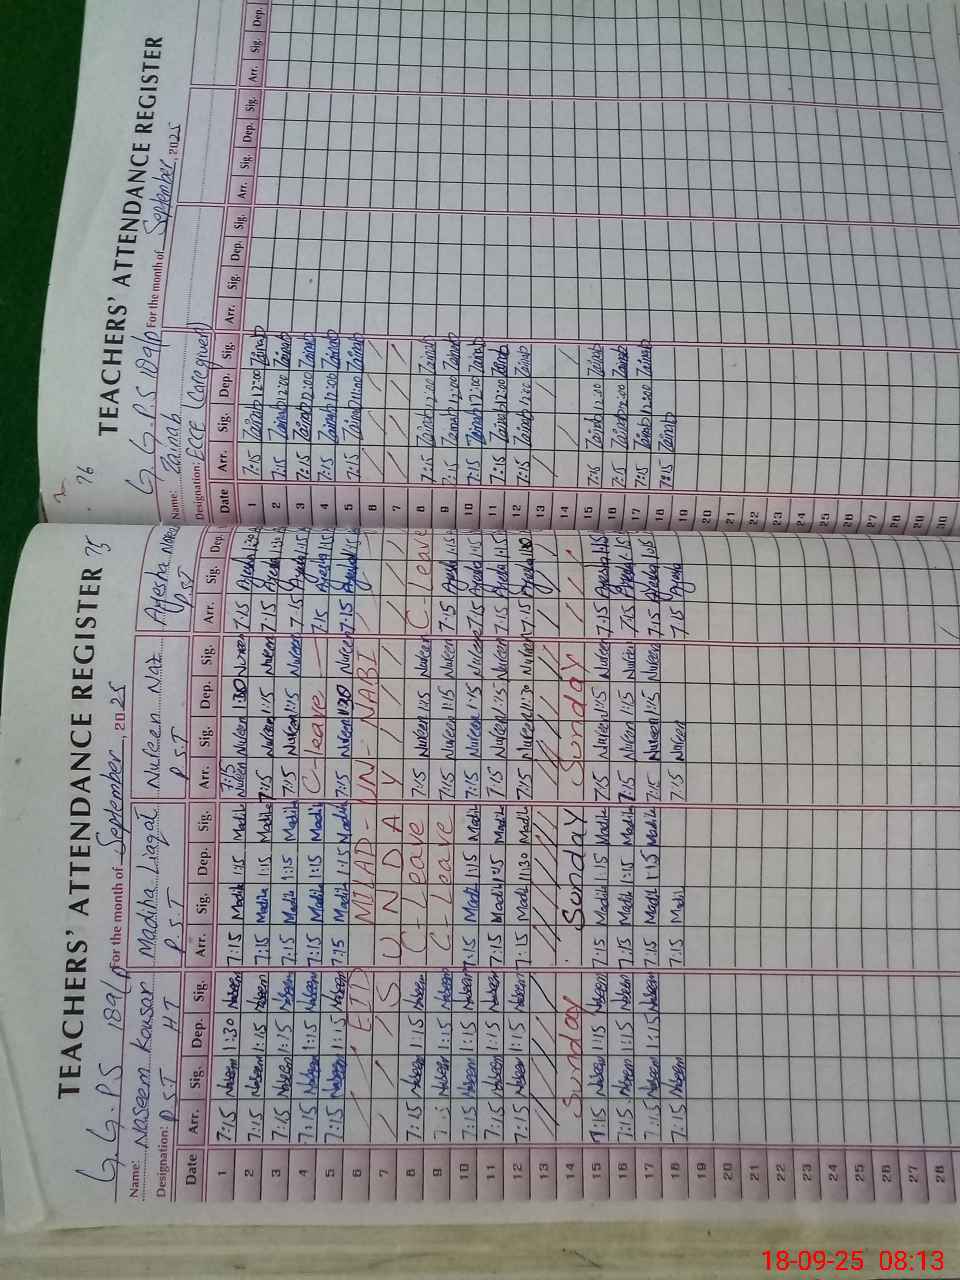 TEACHERS' ATTENDANCE REGISTER 75
G. G. P. S 189/P For the month of September, 2025
Name: Naseem Kousar Madiha Liaqat Nureen Naz Ayesha
Designation: P.S.T HT P.S.T P.S.T P.S.T
Date Arr. Sig. Dep. Sig. Arr. Sig. Dep. Sig. Arr. Sig. Dep. Sig. Arr. Sig. Dep.
1 7:15 Naseem 1:30 Naseem 7:15 Madiha 1:15 Madiha 7:15 Nureen 1:30 Nureen 7:15 Ayesha 1:30
2 7:15 Naseem 1:15 Naseem 7:15 Madiha 1:15 Madiha 7:15 Nureen 1:15 Nureen 7:15 Ayesha 1:30
3 7:15 Naseem 1:15 Naseem 7:15 Madiha 1:15 Madiha 7:15 Nureen 1:15 Nureen 7:15 Ayesha 1:15
4 7:15 Naseem 1:15 Naseem 7:15 Madiha 1:15 Madiha C-leave 7:15 Ayesha 1:15
5 7:15 Naseem 1:15 Naseem 7:15 Madiha 1:15 Madiha 7:15 Nureen Nureen 7:15 Ayesha
6 EID MILAD-UN-NABI
7 SUNDAY
8 7:15 Naseem 1:15 Naseem C-Leave 7:15 Nureen 1:15 Nureen C-Leave
9 Naseem 1:15 Naseem C-Leave 7:15 Nureen 1:15 Nureen 7:15 Ayesha 1:15
10 7:15 Naseem 1:15 Naseem 7:15 Madiha 1:15 Madiha 7:15 Nureen 1:15 Nureen 7:15 Ayesha 1:15
11 7:15 Naseem 1:15 Naseem 7:15 Madiha 1:15 Madiha 7:15 Nureen 1:15 Nureen 7:15 Ayesha 1:15
12 7:15 Naseem 1:15 Naseem 7:15 Madiha 11:30 Madiha 7:15 Nureen 11:30 Nureen 7:15 Ayesha
13
14 Sunday Sunday Sunday
15 7:15 Naseem 1:15 Naseem 7:15 Madiha 1:15 Madiha 7:15 Nureen 1:15 Nureen 7:15 Ayesha 1:15
16 7:15 Naseem 1:15 Naseem 7:15 Madiha 1:15 Madiha 7:15 Nureen 1:15 Nureen 7:15 Ayesha 1:15
17 7:15 Naseem 1:15 Naseem 7:15 Madiha 1:15 Madiha 7:15 Nureen 1:15 Nureen 7:15 Ayesha
18 7:15 Naseem 7:15 Madiha 7:15 Nureen 7:15 Ayesha
19
20
21
22
23
24
25
26
27
28
76 TEACHERS' ATTENDANCE REGISTER
G. G. P. S 189/P For the month of September, 2025
Name: Zainab
Designation: ECCE (Care giver)
Date Arr. Sig. Dep. Sig. Arr. Sig. Dep. Sig. Arr. Sig. Dep. Sig. Arr. Sig. Dep.
1 7:15 Zainab 12:00 Zainab
2 7:15 Zainab 12:00 Zainab
3 7:15 Zainab 12:00 Zainab
4 7:15 Zainab 12:00 Zainab
5 7:15 Zainab 11:00 Zainab
6
7
8 7:15 Zainab 12:00 Zainab
9 7:15 Zainab 12:00 Zainab
10 7:15 Zainab 12:00 Zainab
11 7:15 Zainab 12:00 Zainab
12 7:15 Zainab 12:00 Zainab
13
14
15 7:15 Zainab 12:00 Zainab
16 7:15 Zainab 12:00 Zainab
17 7:15 Zainab 12:00 Zainab
18 7:15 Zainab
19
20
21
22
23
24
25
26
27
28
29
30
18-09-25 08:13